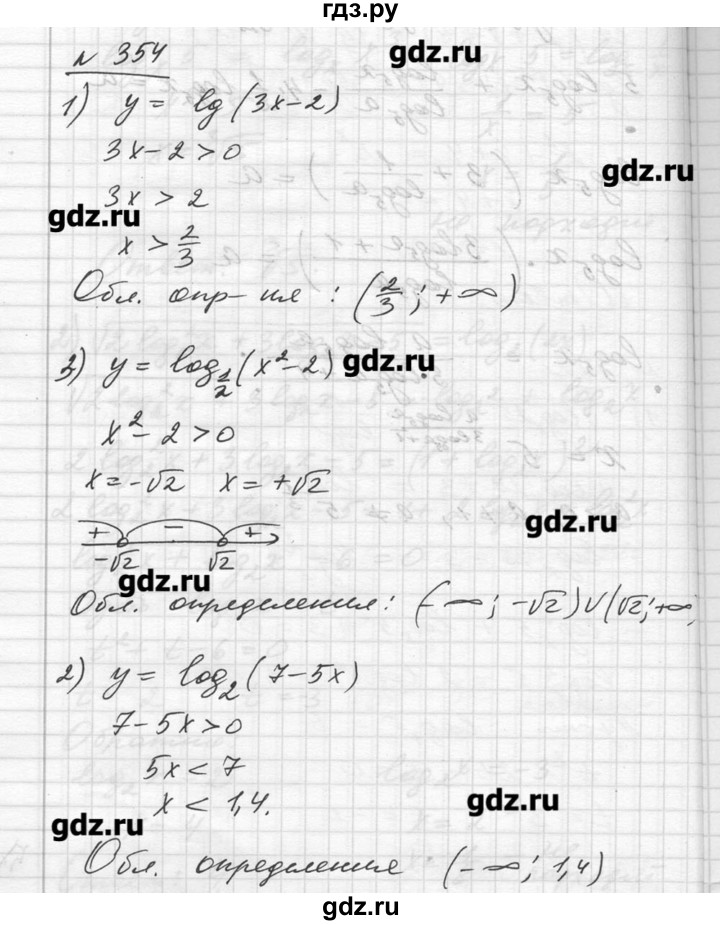 гдз.ру
№ 354
gdz.ru
1) y = lg(3x-2)
3x-2>0
gdz.ru
3x > 2
gdz.ru
x > 2/3
Обл. опр-ния : (2/3; +∞)
3) y = log_{1/2}(x²-2)
gdz.ru
x²-2>0
x=-√2 x=+√2
gdz.ru
+ - +
-√2 √2
gdz.ru
Обл. определения: (-∞; -√2)∪(√2; +∞
2) y = log₂(7-5x)
7-5x>0
5x < 7
x < 1,4.
gdz.ru
gdz.ru
Обл. определения (-∞; 1,4)
gdz.ru